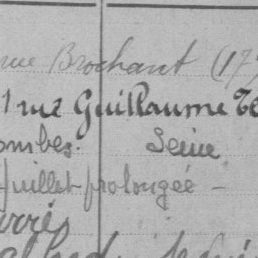 rue Brochant (17
1 rue Guillaume Te
ombes. Seine
Juillet prolongée -